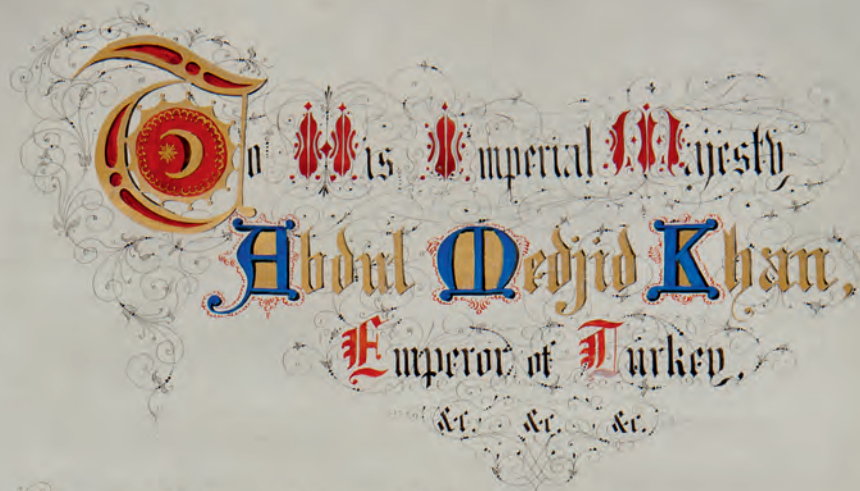 To His Imperial Majesty
Abdul Medjid Khan,
Emperor of Turkey,
&c. &c. &c.